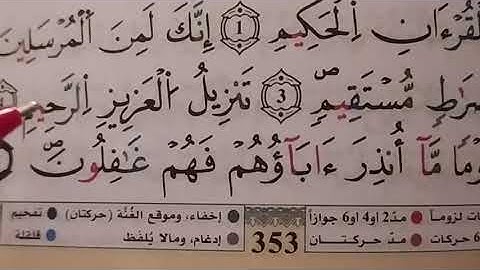 لْقُرْءَانِ اِ۬لْحَكِيمِ 1 إِنَّكَ لَمِنَ اَ۬لْمُرْسَلِينَ
صِرَٰطٖ مُّسْتَقِيمٖۖ 3 تَنزِيلُ اُ۬لْعَزِيزِ اِ۬لرَّحِيمِ
قَوْماٗ مَّآ أُنذِرَ ءَابَآؤُهُمْ فَهُمْ غَٰفِلُونَۖ
ات لزوماً مدّ2 او4 او6 جوازاً إخفاء، وموقع الغُنَّة (حركتان) تفخيم
6 حركات مدّ حركتــان 353 إدغام، ومالا يُلفَظ قلقلة